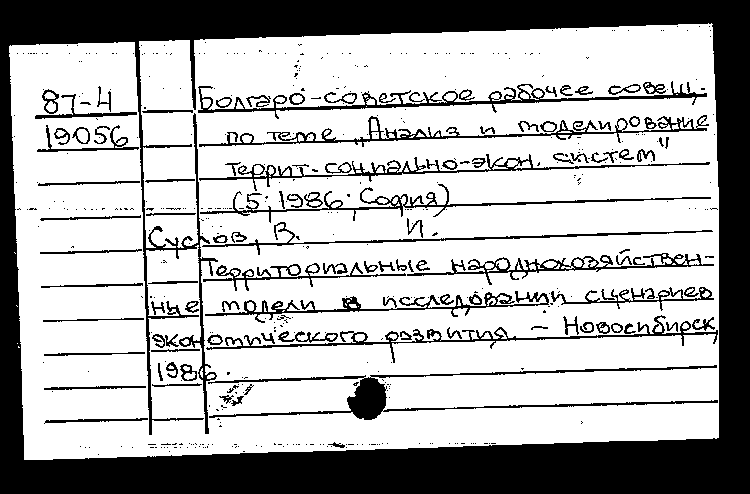 87-4 Болгаро-советское рабочее совещ.
19056 по теме „Анализ и моделирование
террит.-социально-экон. систем"
(5; 1986; София)
Суслов, В. И.
Территориальные народнохозяйствен-
ные модели в исследовании сценариев
экономического развития. - Новосибирск,
1986.